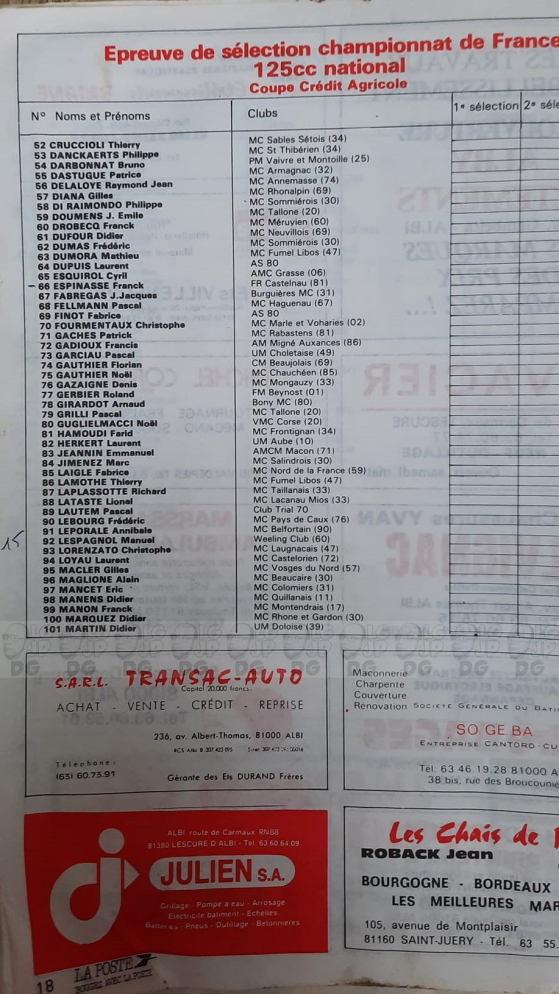 Epreuve de sélection championnat de France
125cc national
Coupe Crédit Agricole
N° Noms et Prénoms Clubs 1e sélection 2e séle
52 CRUCCIOLI Thierry MC Sables Sétois (34)
53 DANCKAERTS Philippe MC St Thibérien (34)
54 DARBONNAT Bruno PM Vaivre et Montoille (25)
55 DASTUGUE Patrice MC Armagnac (32)
56 DELALOYE Raymond Jean MC Annemasse (74)
57 DIANA Gilles MC Rhonalpin (69)
58 DI RAIMONDO Philippe MC Sommiérois (30)
59 DOUMENS J. Emile MC Tallone (20)
60 DROBECQ Franck MC Méruyien (60)
61 DUFOUR Didier MC Neuvillois (69)
62 DUMAS Frédéric MC Sommiérois (30)
63 DUMORA Mathieu MC Fumel Libos (47)
64 DUPUIS Laurent AS 80
65 ESQUIROL Cyril AMC Grasse (06)
66 ESPINASSE Franck FR Castelnau (81)
67 FABREGAS J.Jacques Burguières MC (31)
68 FELLMANN Pascal MC Haguenau (67)
69 FINOT Fabrice AS 80
70 FOURMENTAUX Christophe MC Marle et Voharies (02)
71 GACHES Patrick MC Rabastens (81)
72 GADIOUX Francis AM Migné Auxances (86)
73 GARCIAU Pascal UM Choletaise (49)
74 GAUTHIER Florian CM Beaujolais (69)
75 GAUTHIER Noël MC Chauchéen (85)
76 GAZAIGNE Denis MC Mongauzy (33)
77 GERBIER Roland FM Beynost (01)
78 GIRARDOT Arnaud Bony MC (80)
79 GRILLI Pascal MC Tallone (20)
80 GUGLIELMACCI Noël VMC Corse (20)
81 HAMOUDI Farid MC Frontignan (34)
82 HERKERT Laurent UM Aube (10)
83 JEANNIN Emmanuel AMCM Macon (71)
84 JIMENEZ Marc MC Salindrois (30)
85 LAIGLE Fabrice MC Nord de la France (59)
86 LAMOTHE Thierry MC Fumel Libos (47)
87 LAPLASSOTTE Richard MC Taillanais (33)
88 LATASTE Lionel MC Lacanau Mios (33)
89 LAUTEM Pascal Club Trial 70
90 LEBOURG Frédéric MC Pays de Caux (76)
91 LEPORALE Annibale MC Belfortain (90)
92 ESPAGNOL Manuel Weeling Club (60)
93 LORENZATO Christophe MC Laugnacais (47)
94 LOYAU Laurent MC Castelorien (72)
95 MACLER Gilles MC Vosges du Nord (57)
96 MAGLIONE Alain MC Beaucaire (30)
97 MANCET Eric MC Colomiers (31)
98 MANENS Didier MC Quillanais (11)
99 MANON Franck MC Montendrais (17)
100 MARQUEZ Didier MC Rhone et Gardon (30)
101 MARTIN Didier UM Doloise (39)
15
S.A.R.L. TRANSAC-AUTO
Capital 20.000 francs.
ACHAT - VENTE - CRÉDIT - REPRISE
236, av. Albert-Thomas, 81000 ALBI
Téléphone:
(63) 60.75.91 Gérante des Ets DURAND Frères
Maconnerie
Charpente
Couverture
Rénovation SOCIETE GENERALE DU BATI
SO GE BA
ENTREPRISE CANTORO-CU
Tél. 63 46 19 28 81000 A
38 bis, rue des Broucouni
ALBI, route de Carmaux RN88
81380 LESCURE D'ALBI - Tél. 63 60.64.09
JULIEN S.A.
Grillage - Pompe à eau - Arrosage
Electricité batiment - Echelles
Batteries - Pneus - Outillage - Betonnières
Les Chais de
ROBACK Jean
BOURGOGNE - BORDEAUX
LES MEILLEURES MAR
105, avenue de Montplaisir
81160 SAINT-JUERY - Tél. 63 55.
18 LA POSTE
BOUGEZ AVEC LA POSTE